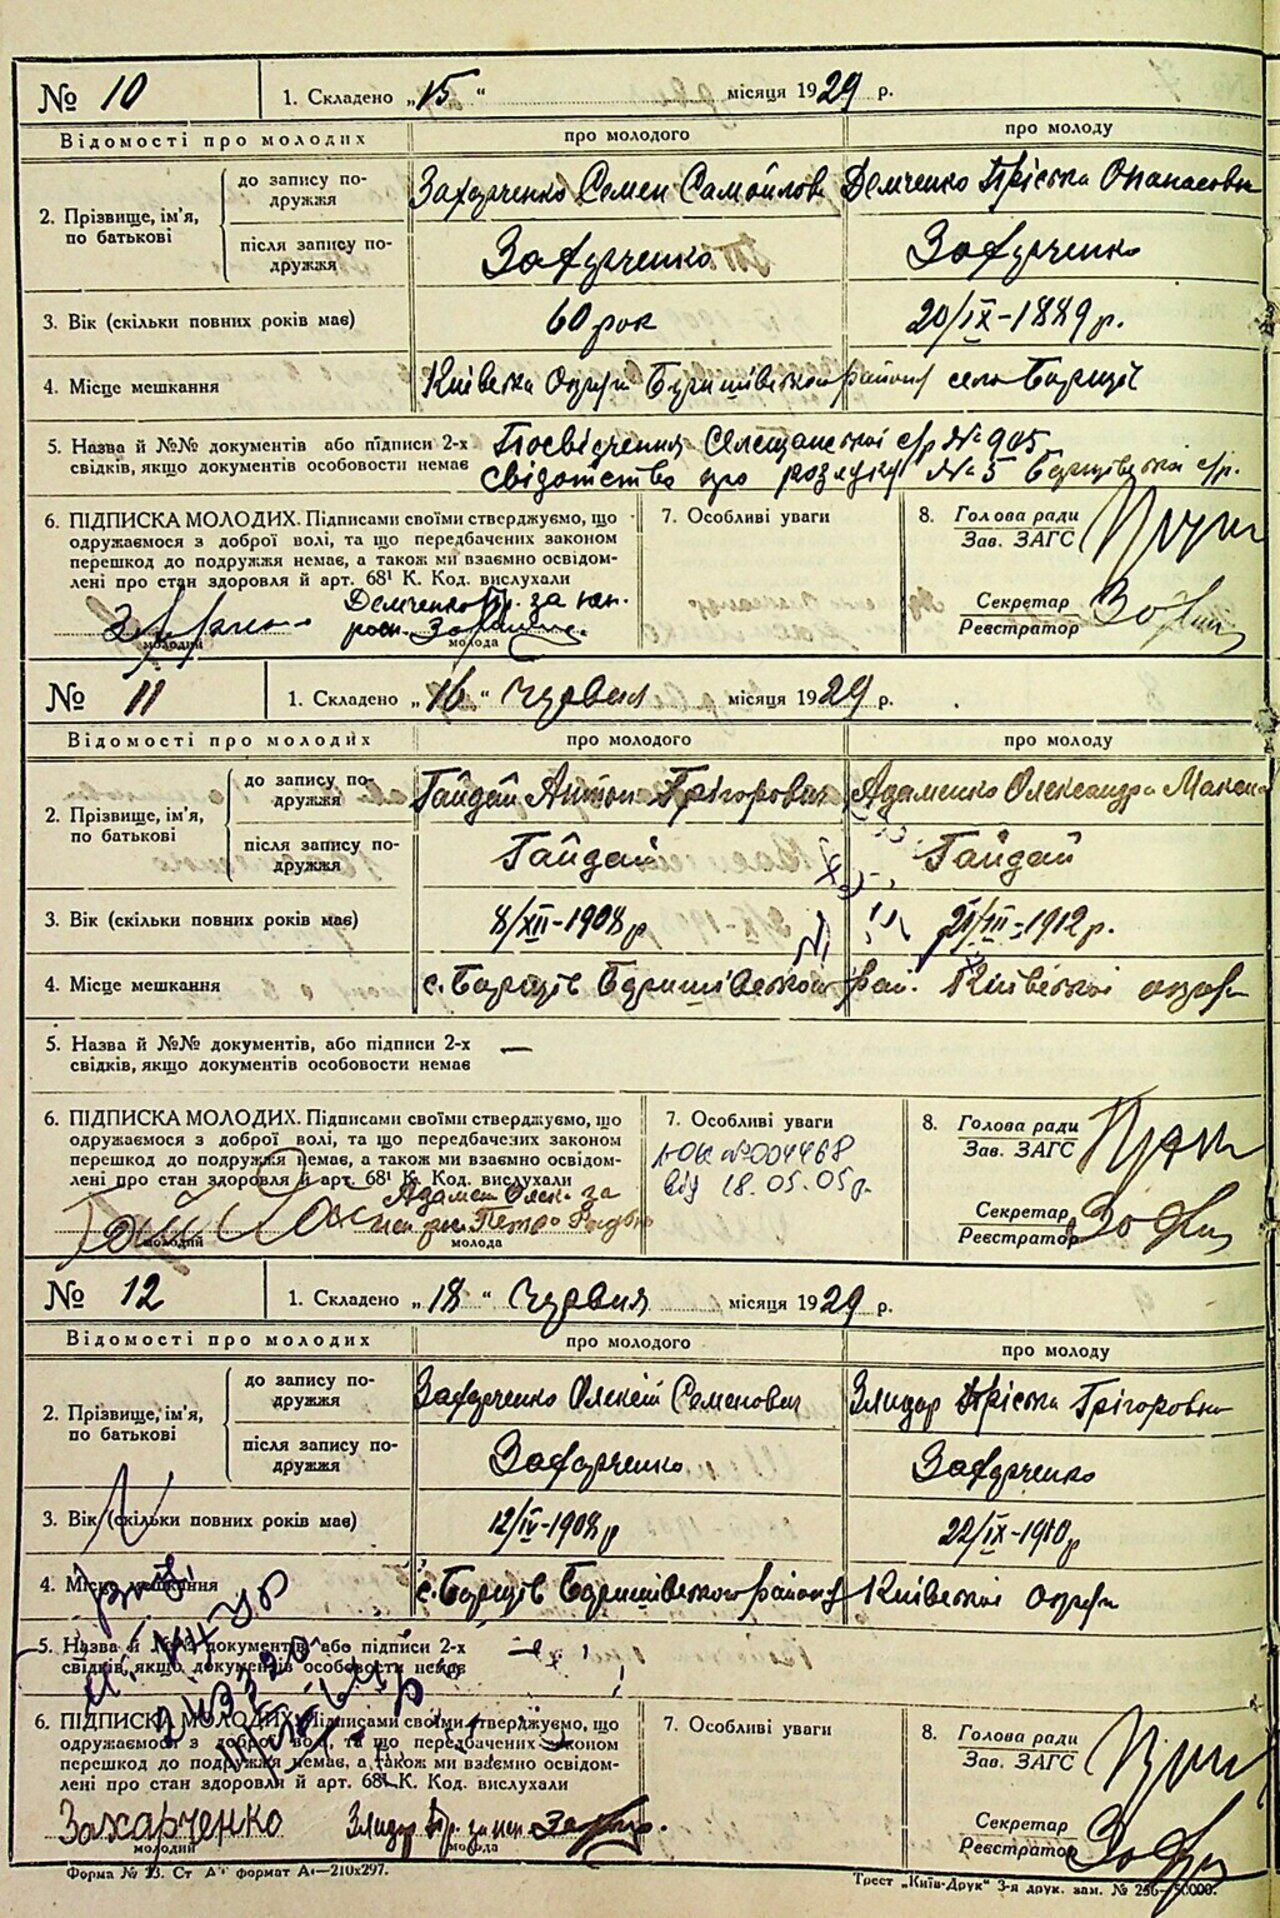 № 10 1. Складено „15“ місяця 1929 р.
Відомості про молодих про молодого про молоду
2. Прізвище, ім'я, по батькові
до запису подружжя Захарченко Семен Самойлов Демченко Пріська Опанасовна
після запису подружжя Захарченко Захарченко
3. Вік (скільки повних років має) 60 рок 20/IX-1889 р.
4. Місце мешкання Київська Округи Баришівського району село Борщів
5. Назва й №№ документів або підписи 2-х Посвідчення Селещанської с/р № 905
свідків, якщо документів особовости немає свідотство про розлуку № 5 Борщівської с/р.
6. ПІДПИСКА МОЛОДИХ. Підписами своїми стверджуємо, що 7. Особливі уваги 8. Голова ради
одружаємося з доброї волі, та що передбачених законом Зав. ЗАГС
перешкод до подружжя немає, а також ми взаємно освідом-
лені про стан здоровля й арт. 68¹ К. Код. вислухали
Демченко Пр. за неп. Секретар
Реєстратор
молодий молода
№ 11 1. Складено „16“ Червня місяця 1929 р.
Відомості про молодих про молодого про молоду
2. Прізвище, ім'я, по батькові
до запису подружжя Гайдай Антон Грігорович Адаменко Олександра Максим
після запису подружжя Гайдай Гайдай
3. Вік (скільки повних років має) 8/XII-1908 р 21/III-1912 р.
4. Місце мешкання с. Борщів Баришівського рай. Київської округи
5. Назва й №№ документів, або підписи 2-х —
свідків, якщо документів особовости немає
6. ПІДПИСКА МОЛОДИХ. Підписами своїми стверджуємо, що 7. Особливі уваги 8. Голова ради
одружаємося з доброї волі, та що передбачених законом І-ОК №004468 Зав. ЗАГС
перешкод до подружжя немає, а також ми взаємно освідом- від 18.05.05р.
лені про стан здоровля й арт. 68¹ К. Код. вислухали
Адамен Олек. за Секретар
Гайдай Петро Реєстратор
молодий молода
№ 12 1. Складено „18“ Червня місяця 1929 р.
Відомості про молодих про молодого про молоду
2. Прізвище, ім'я, по батькові
до запису подружжя Захарченко Олексій Семенович Злидар Пріська Грігоровна
після запису подружжя Захарченко Захарченко
3. Вік (скільки повних років має) 12/IV-1908 р 22/IX-1910 р
4. Місце мешкання с. Борщів Баришівського району Київської округи
5. Назва й №№ документів або підписи 2-х —
свідків, якщо документів особовости немає
6. ПІДПИСКА МОЛОДИХ. Підписами своїми стверджуємо, що 7. Особливі уваги 8. Голова ради
одружаємося з доброї волі, та що передбачених законом Зав. ЗАГС
перешкод до подружжя немає, а також ми взаємно освідом-
лені про стан здоровля й арт. 68¹ К. Код. вислухали
Захарченко Злидар Пр. за неп. Секретар
молодий молода Реєстратор
Форма № 13. Ст А⁴ формат А⁴—210х297. Трест „Київ-Друк“ 3-я друк. зам. № 256—50000.